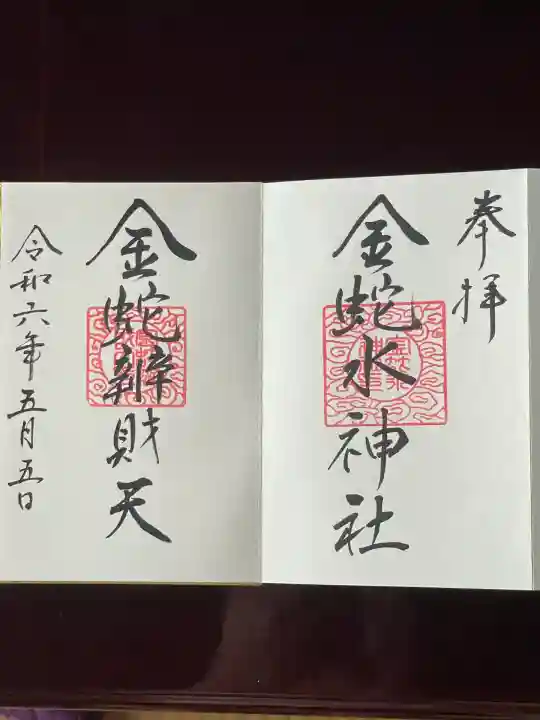 奉拝
金蛇水神社
金蛇辨財天
令和六年五月五日